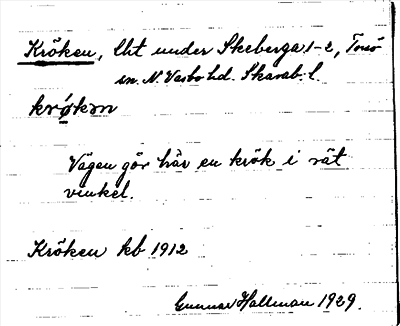 Kröken, lht under Skeberga 1-2, Torsö
sn. N. Vadsbo hd. Skarab. l.
krøkɷn
Vägen gör här en krök i rät
vinkel.
Kröken kb 1912
Gunnar Hallman 1929.